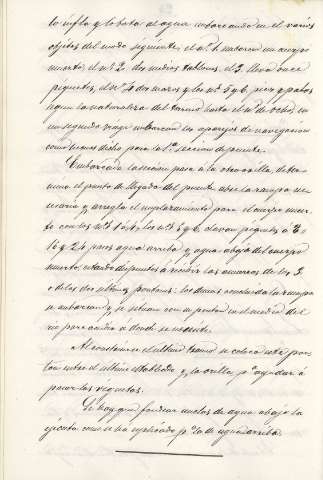 lo infla y lo bota al agua embarcando en el varios
objetos del modo siguiente, el nº 1. un cuerpo
muerto, el nº 2. dos medios tablones, el 3. lleva once
piquetes, el nº 4 dos mazos y los nos 5 y 6. picos y palas
segun la naturaleza del terreno hasta el nº de ocho, en
un segundo viage embarcan los aparejos de navegacion
como hemos dicho para la 1ª seccion de puente.
Embarcada la seccion pasa à la otra orilla, deter-
mina el punto de llegada del puente abre la rampa ne-
cesaria y arregla el emplazamiento para el cuerpo muer-
to con los nos los nos 5 y 6 clavan piquetes à
16 y 24 pasos agua arriba y agua abajo del cuerpo
muerto, estando dispuestos à recibir las amarras de los
de los dos ultimos pontones; los demas concluida la rampa
se embarcan y se situan con su ponton en el medio del
rio para acudir à donde se necesite.
Al construirse el ultimo tramo se coloca este pon-
ton entre el ultimo establecido y la orilla pª ayudar á
poner las viguetas.
Si hay que fondear anclas de agua abajo lo
ejecuta como se ha esplicado pª las de agua arriba.